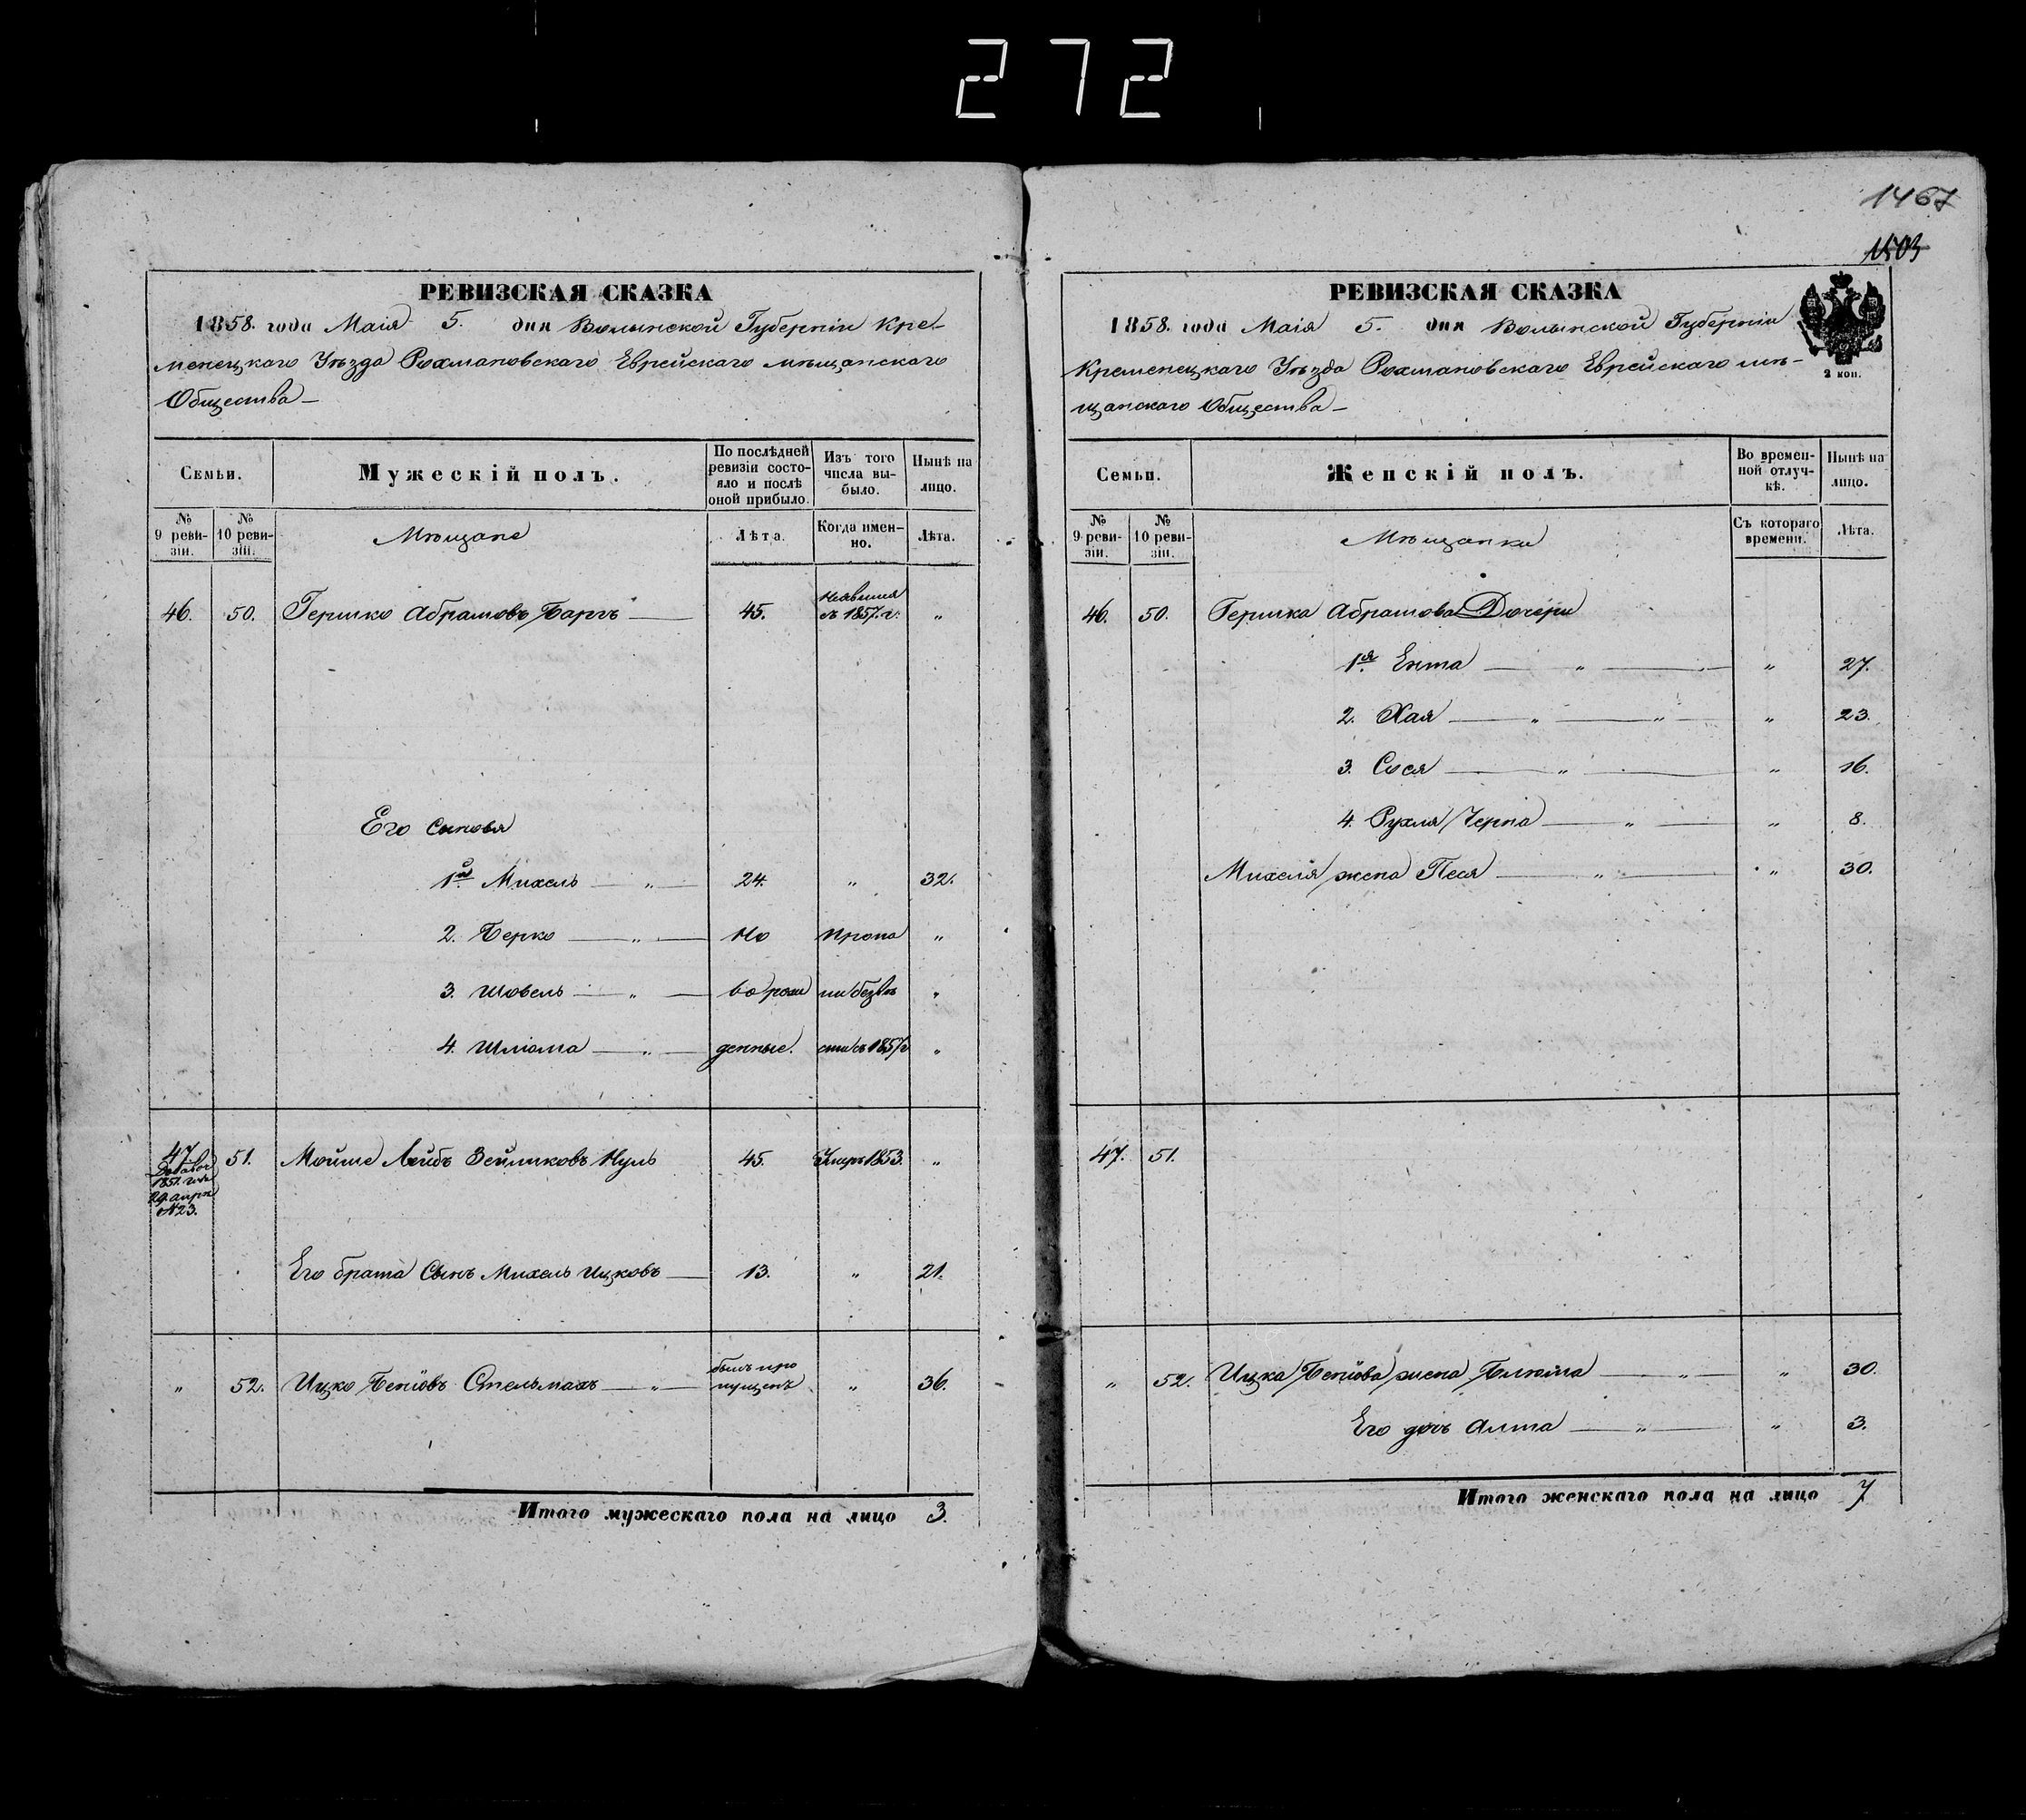 272
1467
1503
РЕВИЗСКАЯ СКАЗКА
1858. года Маія 5. дня Волынской Губерніи Кре-
менецкаго Уѣзда Рохмановскаго Еврейскаго мѣщанскаго
Общества —
Семьи. Мужескій полъ. По послѣдней ревизіи состояло и послѣ оной прибыло. Изъ того числа выбыло. Нынѣ на лицо.
№ 9 ревизіи. № 10 ревизіи. Мѣщане Лѣта. Когда именно. Лѣта.
46. 50. Гершко Абрамовъ Баргъ — 45. Неявился съ 1857. г. "
Его сыновя
1й Михель — " — 24. " 32.
2. Берко — " — Но пропа "
3. Шовель — " — ворож ли безвѣ "
4. Шліома — " — денные. сти съ 1857 г "
47. 51. Мойше Лейбъ Зейликовъ Нуль 45. Умеръ 1853. "
Добавоч
1851. года
29. апрѣ
№ 23.
Его брата Сынъ Михель Ицковъ — 13. " 21.
" 52. Ицко Беніовъ Стельмахъ — " — былъ пропущенъ " 36.
Итого мужескаго пола на лицо 3.
РЕВИЗСКАЯ СКАЗКА
1858. года Маія 5. дня Волынской Губерніи
Кременецкаго Уѣзда Рохмановскаго Еврейскаго мѣ-
щанскаго Общества —
2 коп.
Семьи. Женскій полъ. Во временной отлучкѣ. Нынѣ на лицо.
№ 9 ревизіи. № 10 ревизіи. Мѣщанки Съ котораго времени. Лѣта.
46. 50. Гершка Абрамова Дочери
1я Ента — " — " 27.
2. Хая — " — " — " 23.
3. Сося — " — " 16.
4. Рухля Черна — " — " 8.
Михеля жена Песя — " — " 30.
47. 51.
" 52. Ицка Беніова жена Блюма — " — " 30.
Его дочь Алта — " — " 3.
Итого женскаго пола на лицо 7